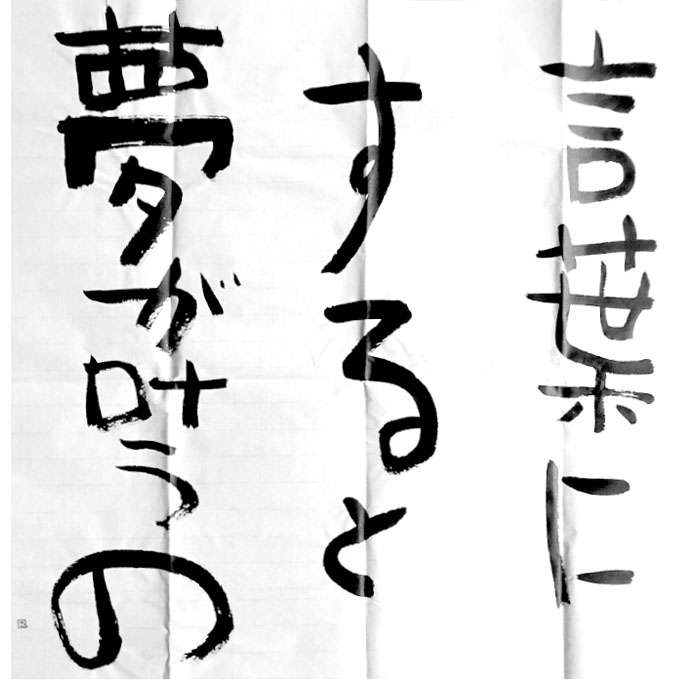 言葉に
すると
夢が叶うの